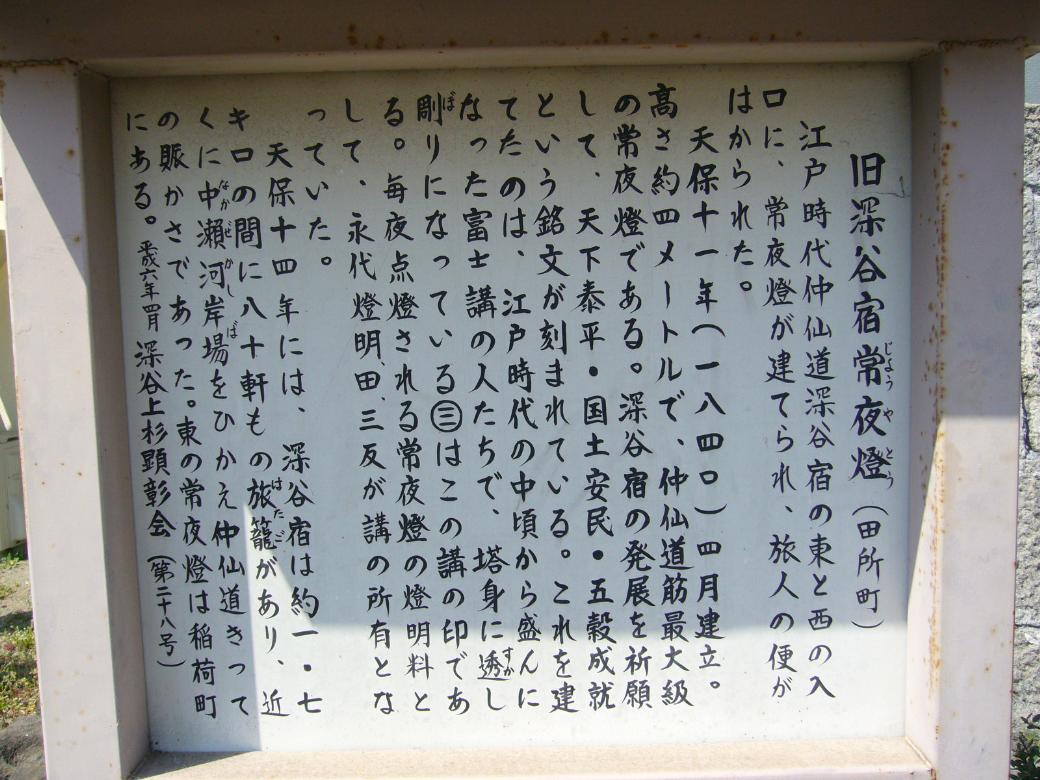 旧深谷宿常夜燈（田所町）
江戸時代仲仙道深谷宿の東と西の入
口に、常夜燈が建てられ、旅人の便が
はかられた。
天保十一年（一八四〇）四月建立。
高さ約四メートルで、仲仙道筋最大級
の常夜燈である。深谷宿の発展を祈願
して、天下泰平・国土安民・五穀成就
という銘文が刻まれている。これを建
てたのは、江戸時代の中頃から盛んに
なった富士講の人たちで、塔身に透し
彫りになっている㊂はこの講の印であ
る。毎夜点燈される常夜燈の燈明料と
して、永代燈明田、三反が講の所有とな
っていた。
天保十四年には、深谷宿は約一・七
キロの間に八十軒もの旅籠があり、近
くに中瀬河岸場をひかえ仲仙道きって
の賑かさであった。東の常夜燈は稲荷町
にある。平成六年四月 深谷上杉顕彰会（第二十八号）